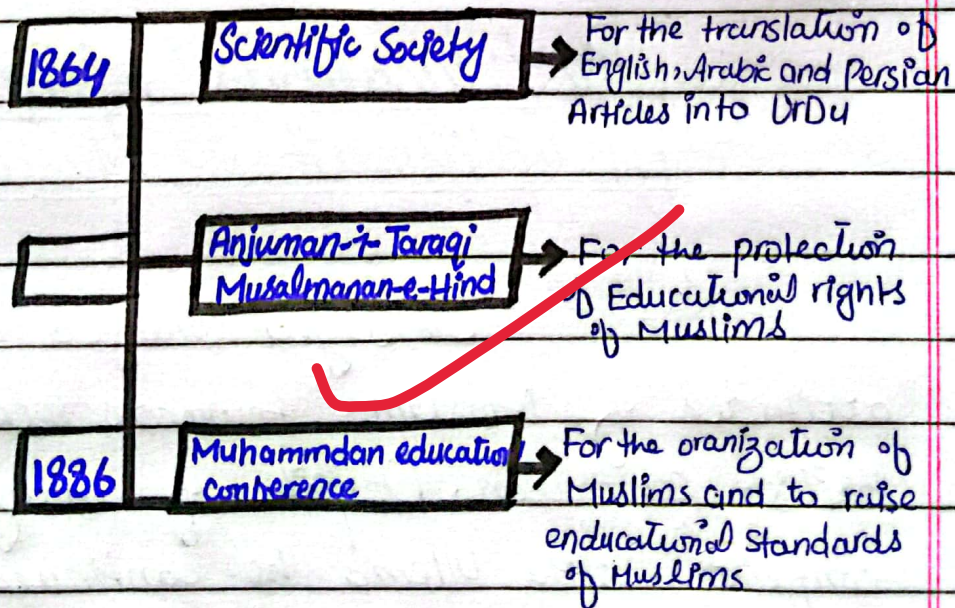 1864
Scientific Society
For the translation of
English, Arabic and Persian
Articles into UrDu
Anjuman-i-Taraqi
Musalmanan-e-Hind
For the protection
of Educational rights
of Muslims
1886
Muhammdan education
conference
For the oranization of
Muslims and to raise
enducational standards
of Muslims